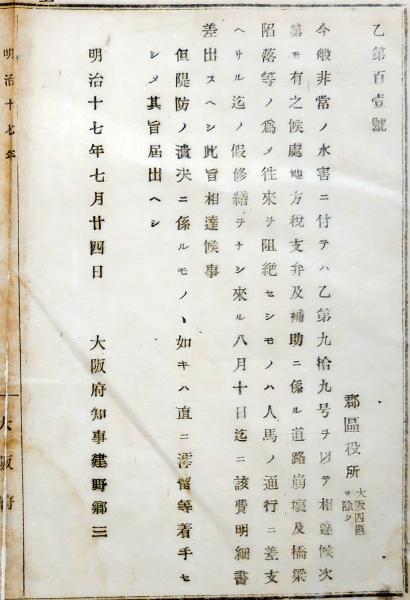 乙第百壹號
郡區役所 大阪四區ヲ除ク
今般非常ノ水害ニ付テハ乙第九拾九号ヲ以テ相達候次
第モ有之候處地方税支弁及補助ニ係ル道路崩壞及橋梁
陷落等ノ爲メ徃來ヲ阻絶セシモノハ人馬ノ通行ニ差支
ヘサル迄ノ假修繕ヲナシ來ル八月十日迄ニ該費明細書
差出スヘシ此旨相達候事
但隄防ノ潰决ニ係ルモノヽ如キハ直ニ澪留等着手セ
シメ其旨届出ヘシ
明治十七年七月廿四日 大阪府知事建野郷三
明治十七年
大阪府